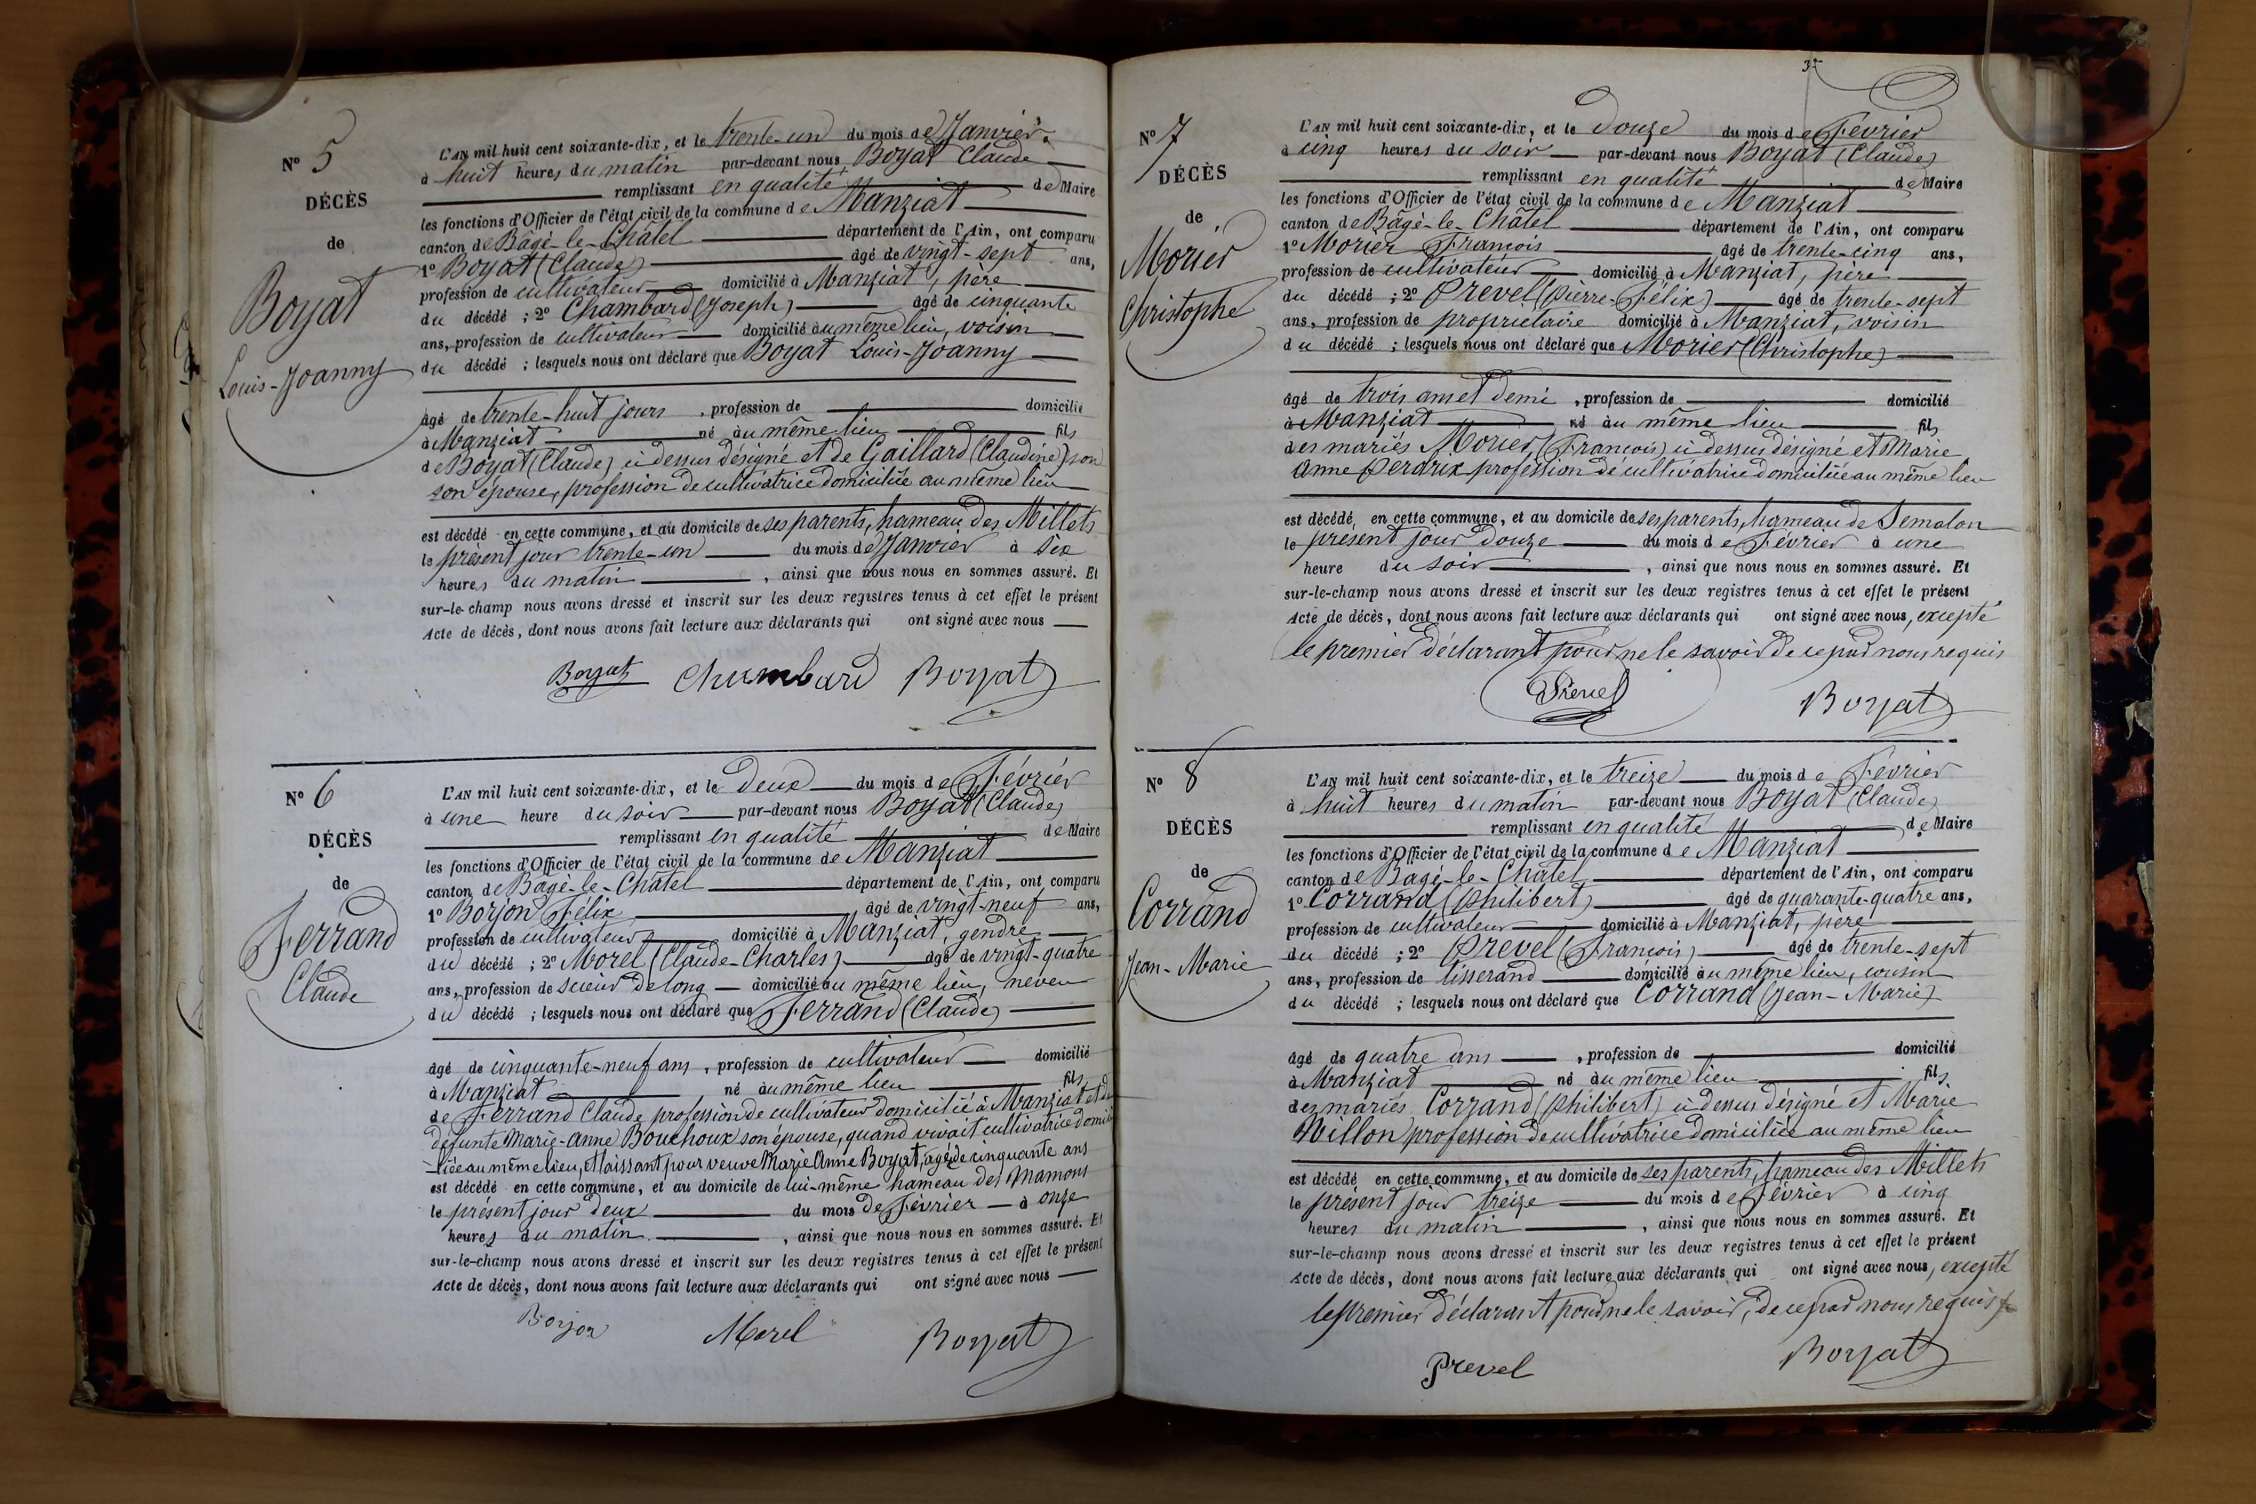 N° 5
DÉCÈS
de
Boyat
Louis-Joanny
L'AN mil huit cent soixante-dix, et le trente-un du mois de Janvier
à huit heures du matin par-devant nous Boyat Claude
remplissant en qualité de Maire
les fonctions d'Officier de l'état civil de la commune de Manziat
canton de Bâgé-le-Châtel département de l'Ain, ont comparu
1° Boyat (Claude) âgé de vingt-sept ans,
profession de cultivateur domicilié à Manziat, père
du décédé ; 2° Chambard (Joseph) âgé de cinquante
ans, profession de cultivateur domicilié au même lieu, voisin
du décédé ; lesquels nous ont déclaré que Boyat Louis-Joanny
âgé de trente-huit jours, profession de domicilié
à Manziat né au même lieu fils
de Boyat (Claude) ci dessus désigné et de Gaillard (Claudine) son
son épouse, profession de cultivatrice domiciliée au même lieu
est décédé en cette commune, et au domicile de ses parents, hameau des Millets
le présent jour trente-un du mois de Janvier à six
heures du matin, ainsi que nous nous en sommes assuré. Et
sur-le-champ nous avons dressé et inscrit sur les deux registres tenus à cet effet le présent
Acte de décès, dont nous avons fait lecture aux déclarants qui ont signé avec nous
Boyat Chambard Boyat
N° 6
DÉCÈS
de
Ferrand
Claude
L'AN mil huit cent soixante-dix, et le deux du mois de Février
à une heure du soir par-devant nous Boyat (Claude)
remplissant en qualité de Maire
les fonctions d'Officier de l'état civil de la commune de Manziat
canton de Bâgé-le-Châtel département de l'Ain, ont comparu
1° Borjon Félix âgé de vingt-neuf ans,
profession de cultivateur domicilié à Manziat, gendre
du décédé ; 2° Morel (Claude-Charles) âgé de vingt-quatre
ans, profession de scieur de long domicilié au même lieu, neveu
du décédé ; lesquels nous ont déclaré que Ferrand (Claude)
âgé de cinquante-neuf ans, profession de cultivateur domicilié
à Manziat né au même lieu fils
de Ferrand Claude profession de cultivateur domicilié à Manziat et de
défunte Marie-Anne Bouchoux son épouse, quand vivait cultivatrice domici
liée au même lieu, et laissant pour veuve Marie Anne Boyat, agée de cinquante ans
est décédé en cette commune, et au domicile de lui-même hameau des Mamons
le présent jour deux du mois de Février à onze
heures du matin, ainsi que nous nous en sommes assuré. Et
sur-le-champ nous avons dressé et inscrit sur les deux registres tenus à cet effet le présent
Acte de décès, dont nous avons fait lecture aux déclarants qui ont signé avec nous
Borjon Morel Boyat
N° 7
DÉCÈS
de
Morier
Christophe
L'AN mil huit cent soixante-dix, et le douze du mois de Février
à cinq heures du soir par-devant nous Boyat (Claude)
remplissant en qualité de Maire
les fonctions d'Officier de l'état civil de la commune de Manziat
canton de Bâgé-le-Châtel département de l'Ain, ont comparu
1° Morier François âgé de trente-cinq ans,
profession de cultivateur domicilié à Manziat, père
du décédé ; 2° Prevel (Pierre-Félix) âgé de trente-sept
ans, profession de propriétaire domicilié à Manziat, voisin
du décédé ; lesquels nous ont déclaré que Morier (Christophe)
âgé de trois ans et demi, profession de domicilié
à Manziat né au même lieu fils
des mariés Morier, (François) ci dessus désigné et Marie
Anne Perdrix profession de cultivatrice domiciliée au même lieu
est décédé en cette commune, et au domicile de ses parents, hameau de Semolon
le présent jour douze du mois de Février à une
heure du soir, ainsi que nous nous en sommes assuré. Et
sur-le-champ nous avons dressé et inscrit sur les deux registres tenus à cet effet le présent
Acte de décès, dont nous avons fait lecture aux déclarants qui ont signé avec nous, excepté
le premier déclarant pour ne le savoir de ce par nous requis
Prevel Boyat
N° 8
DÉCÈS
de
Corrand
Jean-Marie
L'AN mil huit cent soixante-dix, et le treize du mois de Février
à huit heures du matin par-devant nous Boyat (Claude)
remplissant en qualité de Maire
les fonctions d'Officier de l'état civil de la commune de Manziat
canton de Bâgé-le-Châtel département de l'Ain, ont comparu
1° Corrand (Philibert) âgé de quarante-quatre ans,
profession de cultivateur domicilié à Manziat, père
du décédé ; 2° Prevel (François) âgé de trente-sept
ans, profession de tisserand domicilié au même lieu, cousin
du décédé ; lesquels nous ont déclaré que Corrand (Jean-Marie)
âgé de quatre ans, profession de domicilié
à Manziat né au même lieu fils
des mariés Corrand (Philibert) ci dessus désigné et Marie
Millon profession de cultivatrice domiciliée au même lieu
est décédé en cette commune, et au domicile de ses parents, hameau des Millets
le présent jour treize du mois de Février à cinq
heures du matin, ainsi que nous nous en sommes assuré. Et
sur-le-champ nous avons dressé et inscrit sur les deux registres tenus à cet effet le présent
Acte de décès, dont nous avons fait lecture aux déclarants qui ont signé avec nous, excepté
le premier déclarant pour ne le savoir, de ce par nous requis
Prevel Boyat